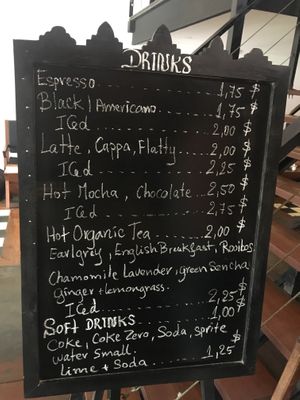 DRINKS
Espresso ............ 1,75 $
Black / Americano ... 1,75 $
Iced ............ 2,00 $
Latte, Cappa, Flatty ... 2,00 $
Iced ............ 2,25 $
Hot Mocha, Chocolate .. 2,50 $
Iced ............ 2,75 $
Hot Organic Tea ..... 2,00 $
Earlgrey, English Breakfast, Rooibos,
Chamomile Lavender, green Sencha
Ginger + lemongrass.
Iced ............ 2,25 $
SOFT DRINKS ........ 1,00 $
Coke, Coke Zero, Soda, Sprite
water small.
Lime + Soda ........ 1,25 $